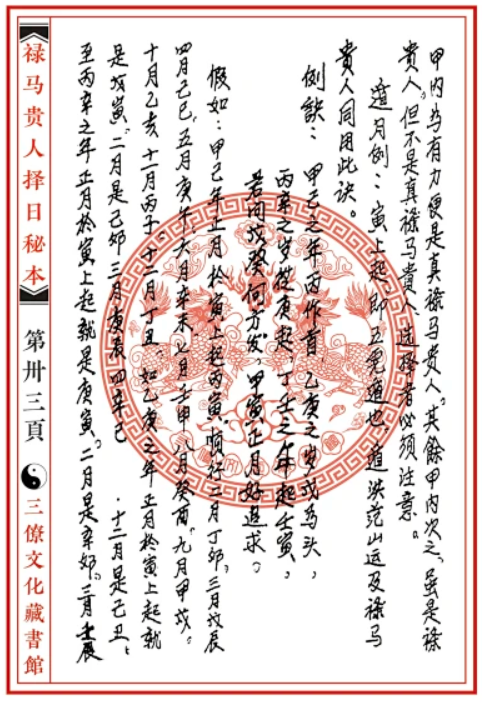 甲内为有力便是真禄马贵人。其餘甲内次之,虽是禄
貴人,但不是真禄马貴人,选择者必须注意。
遁月例:寅上起,即五虎遁也,遁洪范山运及禄马
貴人同用此诀。
例訣:甲己之年丙作首,乙庚之岁戊为头,
丙辛之岁從庚起,丁壬之年起壬寅,
若问戊癸何方发,甲寅正月好追求。
假如:甲己年正月於寅上起丙寅,順行二月丁卯,三月戊辰
四月己巳,五月庚午,六月辛未,七月壬申,八月癸酉,九月甲戌。
十月乙亥,十一月丙子,十二月丁丑。如乙庚之年正月於寅上起就
是戊寅,二月是己卯三月庚辰四辛巳 · 十二月是己丑,
至丙辛之年正月於寅上起就是庚寅。二月是辛卯。三月壬辰
禄马贵人择日秘本
第卅三頁
三僚文化藏書館